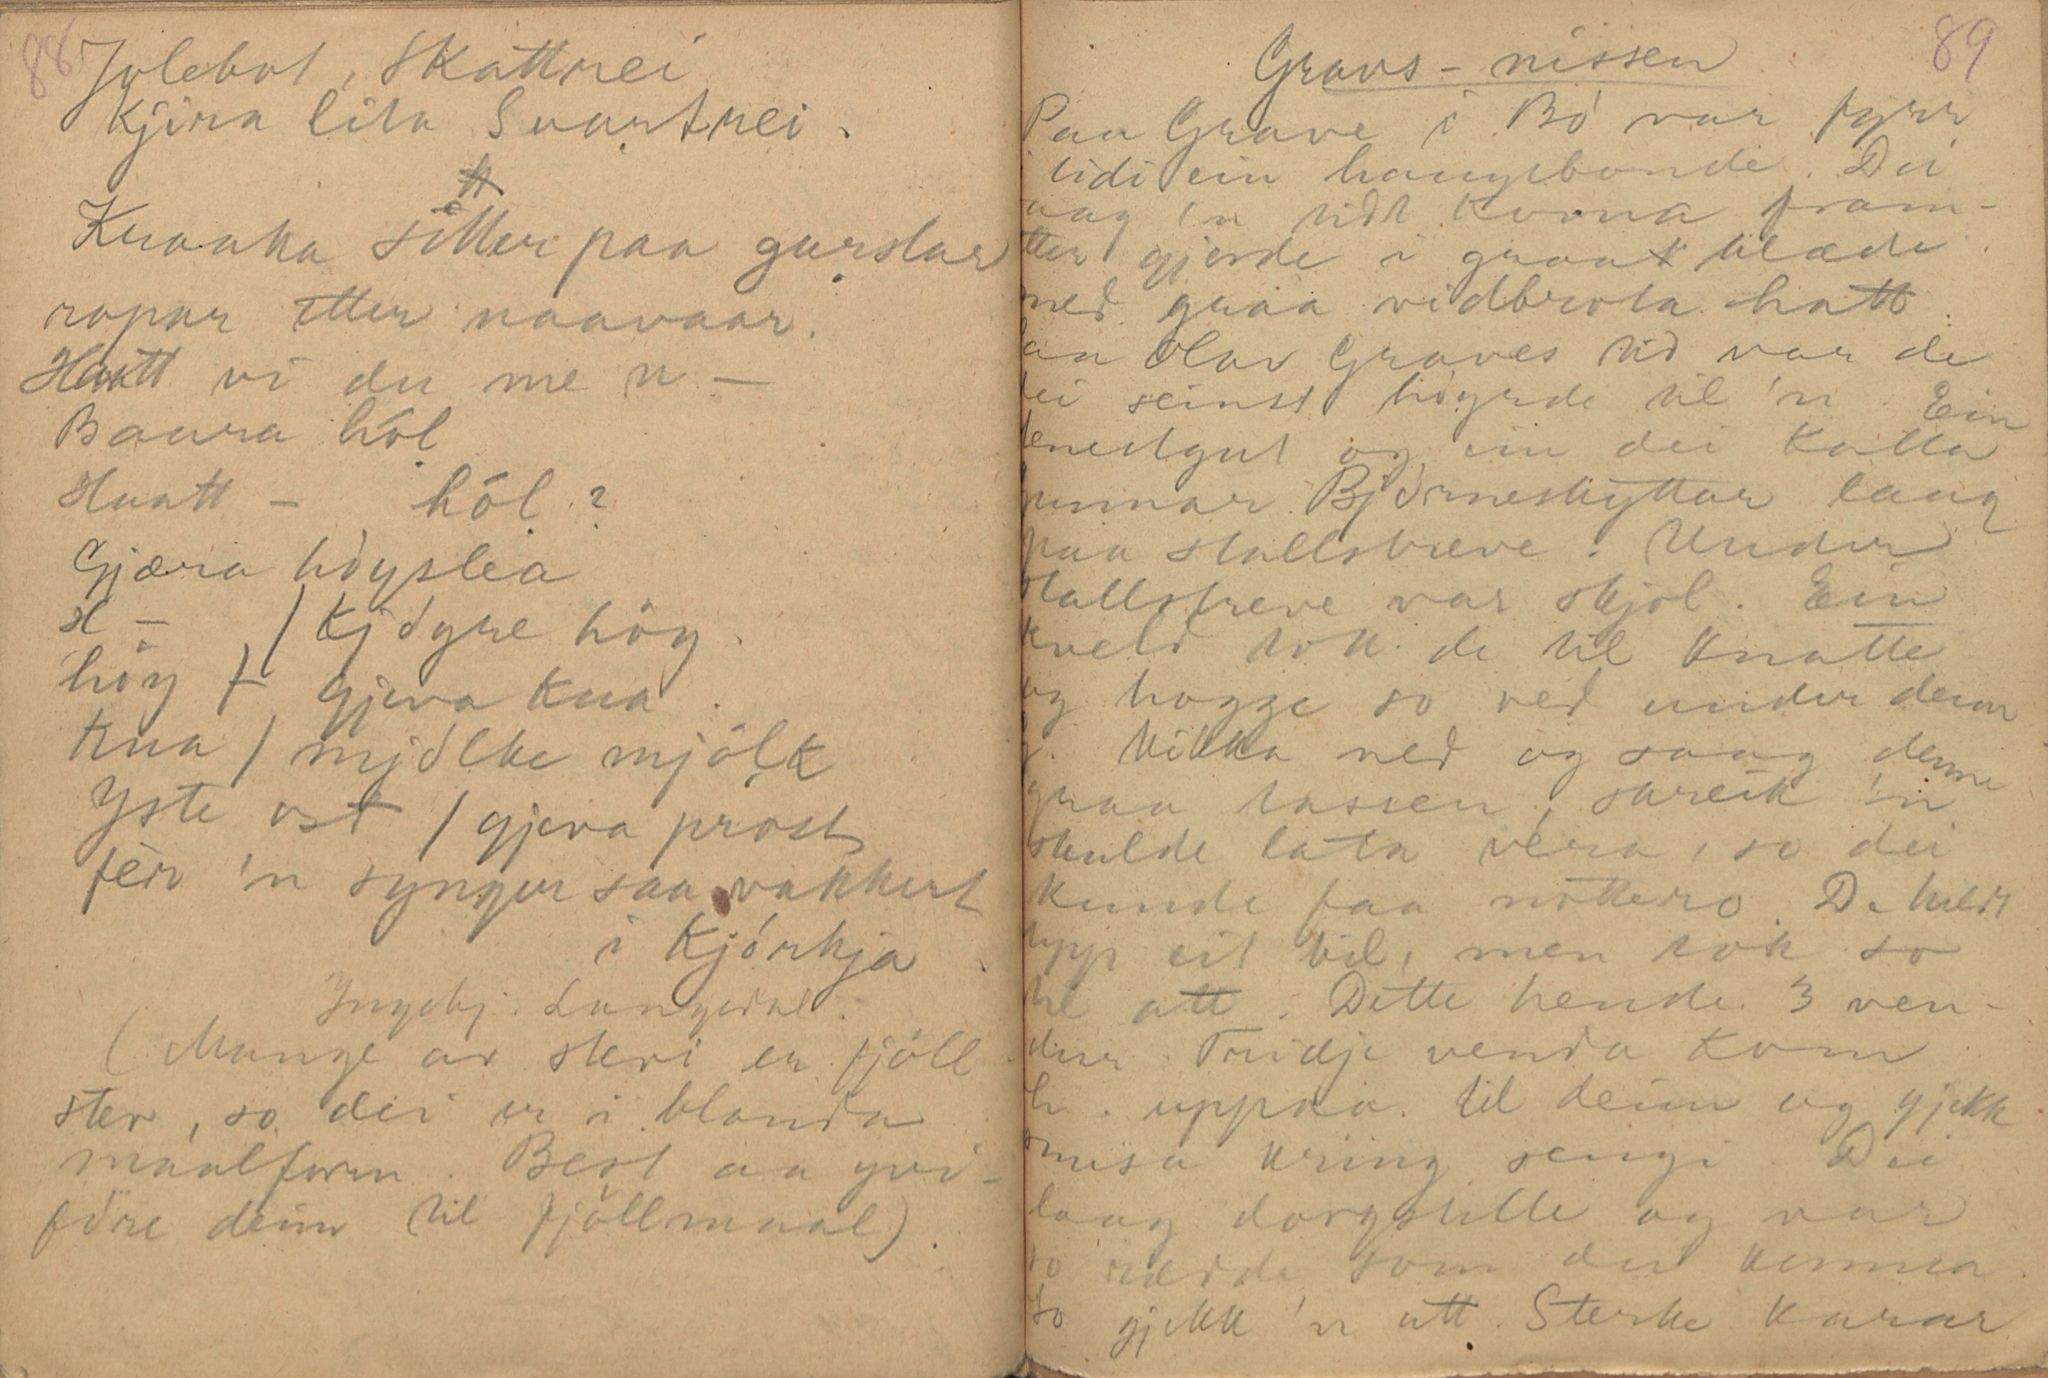 88
Jolebot, Skattrei
Kjira lita Svartrei.
Kraaka sitter paa garstar
ropar etter naavaar.
Hvatt vi du me n —
Baura hól
Hvatt — hól?
Gjæra höyslea
H — / Kjöyre höy.
höy / gjeva kua.
Kua / mjölke mjölk
Yste ost / gjeva prost
fèr 'n synger saa vakkert
i Kjörkja.
Ingebj. Langedal.
(Mange av stevi er fjöll
stev, so dei er i blanda
maalform. Best aa yvi-
före deim til fjöllmaal).
89
Gravs-nissen
Paa Grave i Bö var fyrr
tidi ein haugebonde. Dei
saag 'n tidt koma fram-
etter gjerde i graa klæde
med graa vidbrota hatt.
Paa Olav Graves tid var de
dei seinst höyrde til 'n. Ein
tenestgut og ein dei kalla
Gunnar Björneskyttar laag
paa stallstreve. Under
stallstreve var skjol. Ein
kveld tok de til knatte
og hogge so ved under deim
G. kikka ned og saag denne
graa tassen, skreik 'n
skulde lata vera, so dei
kunde faa nottero. De heldt
upp eit bil, men tok so
til att. Dette hende 3 ven-
dur. Tridje venda kom
h. uppaa til deim og gjekk
snusa kring sengi. Dei
laag dorgstille og var
so rædde som dei kunna.
So gjekk 'n att. Sterke karar